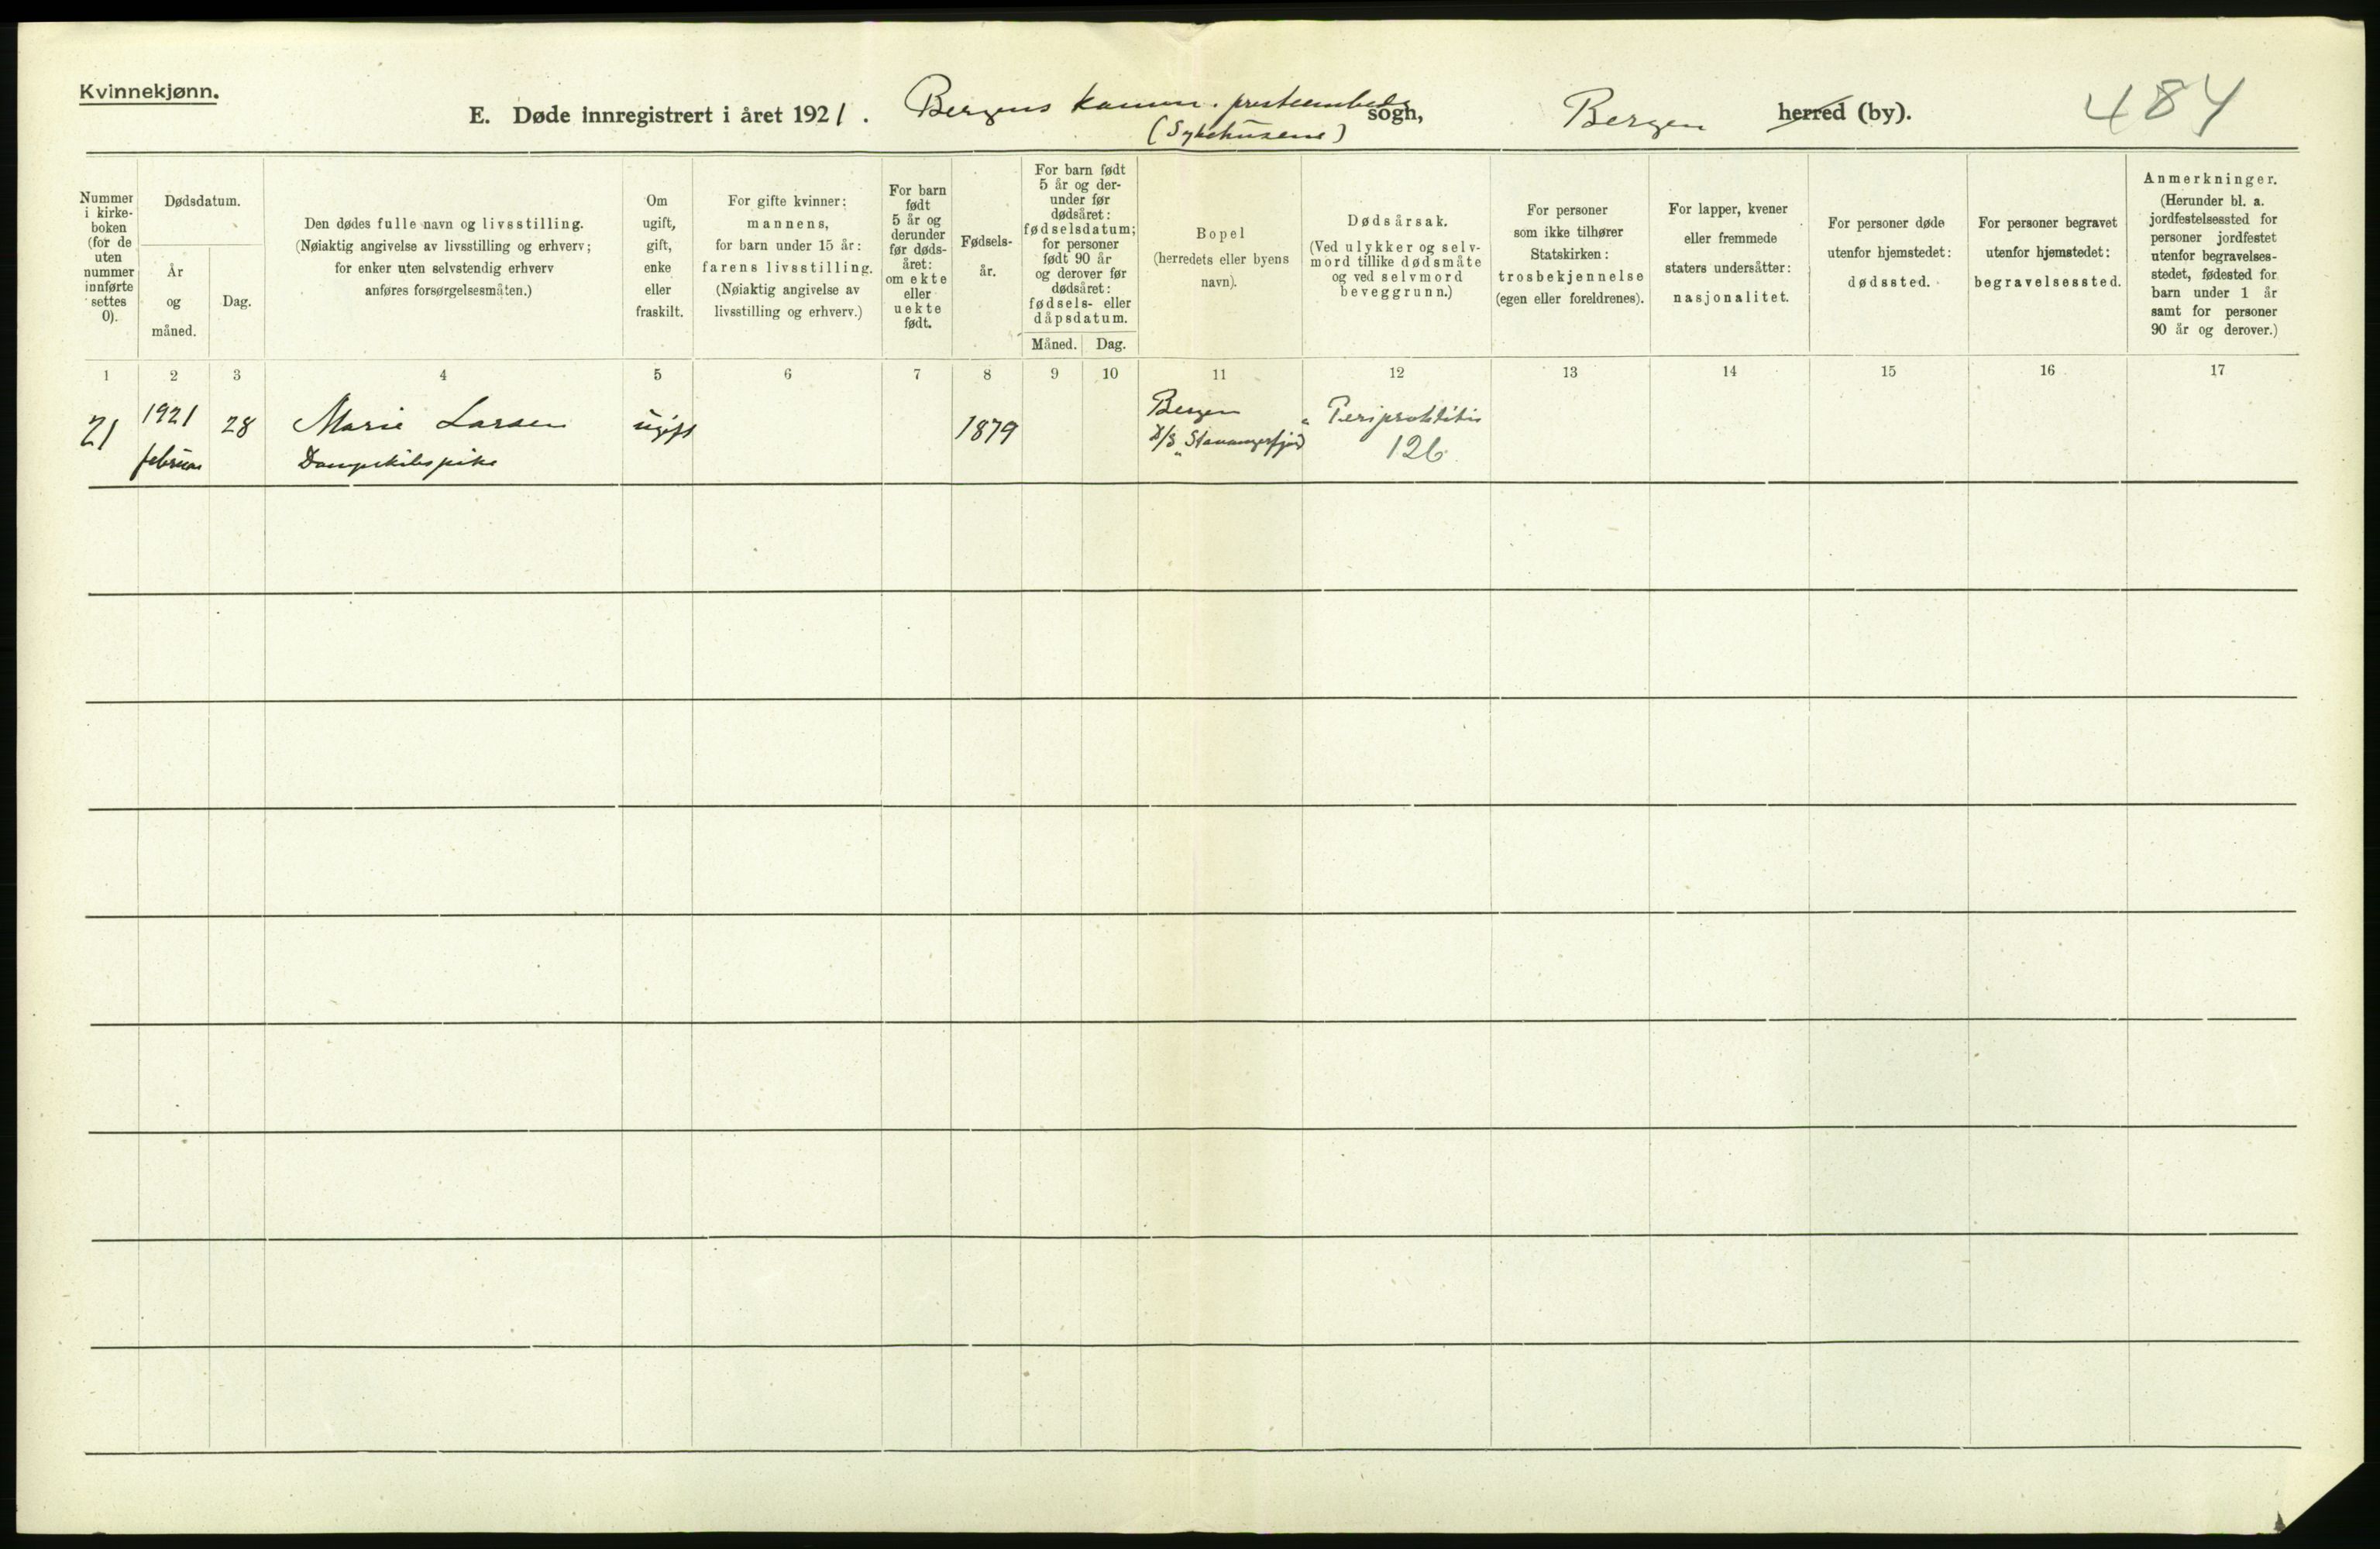 Kvinnekjønn.
E. Døde innregistrert i året 1921. Bergens komm. presteembede sogn, Bergen herred (by). 484
(Sykehusene)
Nummer i kirke-boken (for de uten nummer innførte settes 0).
Dødsdatum.
År og måned.
Dag.
Den dødes fulle navn og livsstilling.
(Nøiaktig angivelse av livsstilling og erhverv;
for enker uten selvstendig erhverv
anføres forsørgelsesmåten.)
Om
ugift,
gift,
enke
eller
fraskilt.
For gifte kvinner:
mannens,
for barn under 15 år:
farens livsstilling.
(Nøiaktig angivelse av
livsstilling og erhverv.)
For barn
født
5 år og
derunder
før døds-
året:
om ekte
eller
uekte
født.
Fødsels-
år.
For barn født
5 år og der-
under før
dødsåret:
fødselsdatum;
for personer
født 90 år
og derover før
dødsåret:
fødsels- eller
dåpsdatum.
Måned. Dag.
Bopel
(herredets eller byens
navn).
Dødsårsak.
(Ved ulykker og selv-
mord tillike dødsmåte
og ved selvmord
beveggrunn.)
For personer
som ikke tilhører
Statskirken:
trosbekjennelse
(egen eller foreldrenes).
For lapper, kvener
eller fremmede
staters undersåtter:
nasjonalitet.
For personer døde
utenfor hjemstedet:
dødssted.
For personer begravet
utenfor hjemstedet:
begravelsessted.
Anmerkninger.
(Herunder bl. a.
jordfestelsessted for
personer jordfestet
utenfor begravelses-
stedet, fødested for
barn under 1 år
samt for personer
90 år og derover.)
1 2 3 4 5 6 7 8 9 10 11 12 13 14 15 16 17
21 1921 28 Marie Larsen ugift 1879 Bergen Periproktitis
februar Dampskibspike D/S „Stavangerfjord" 126